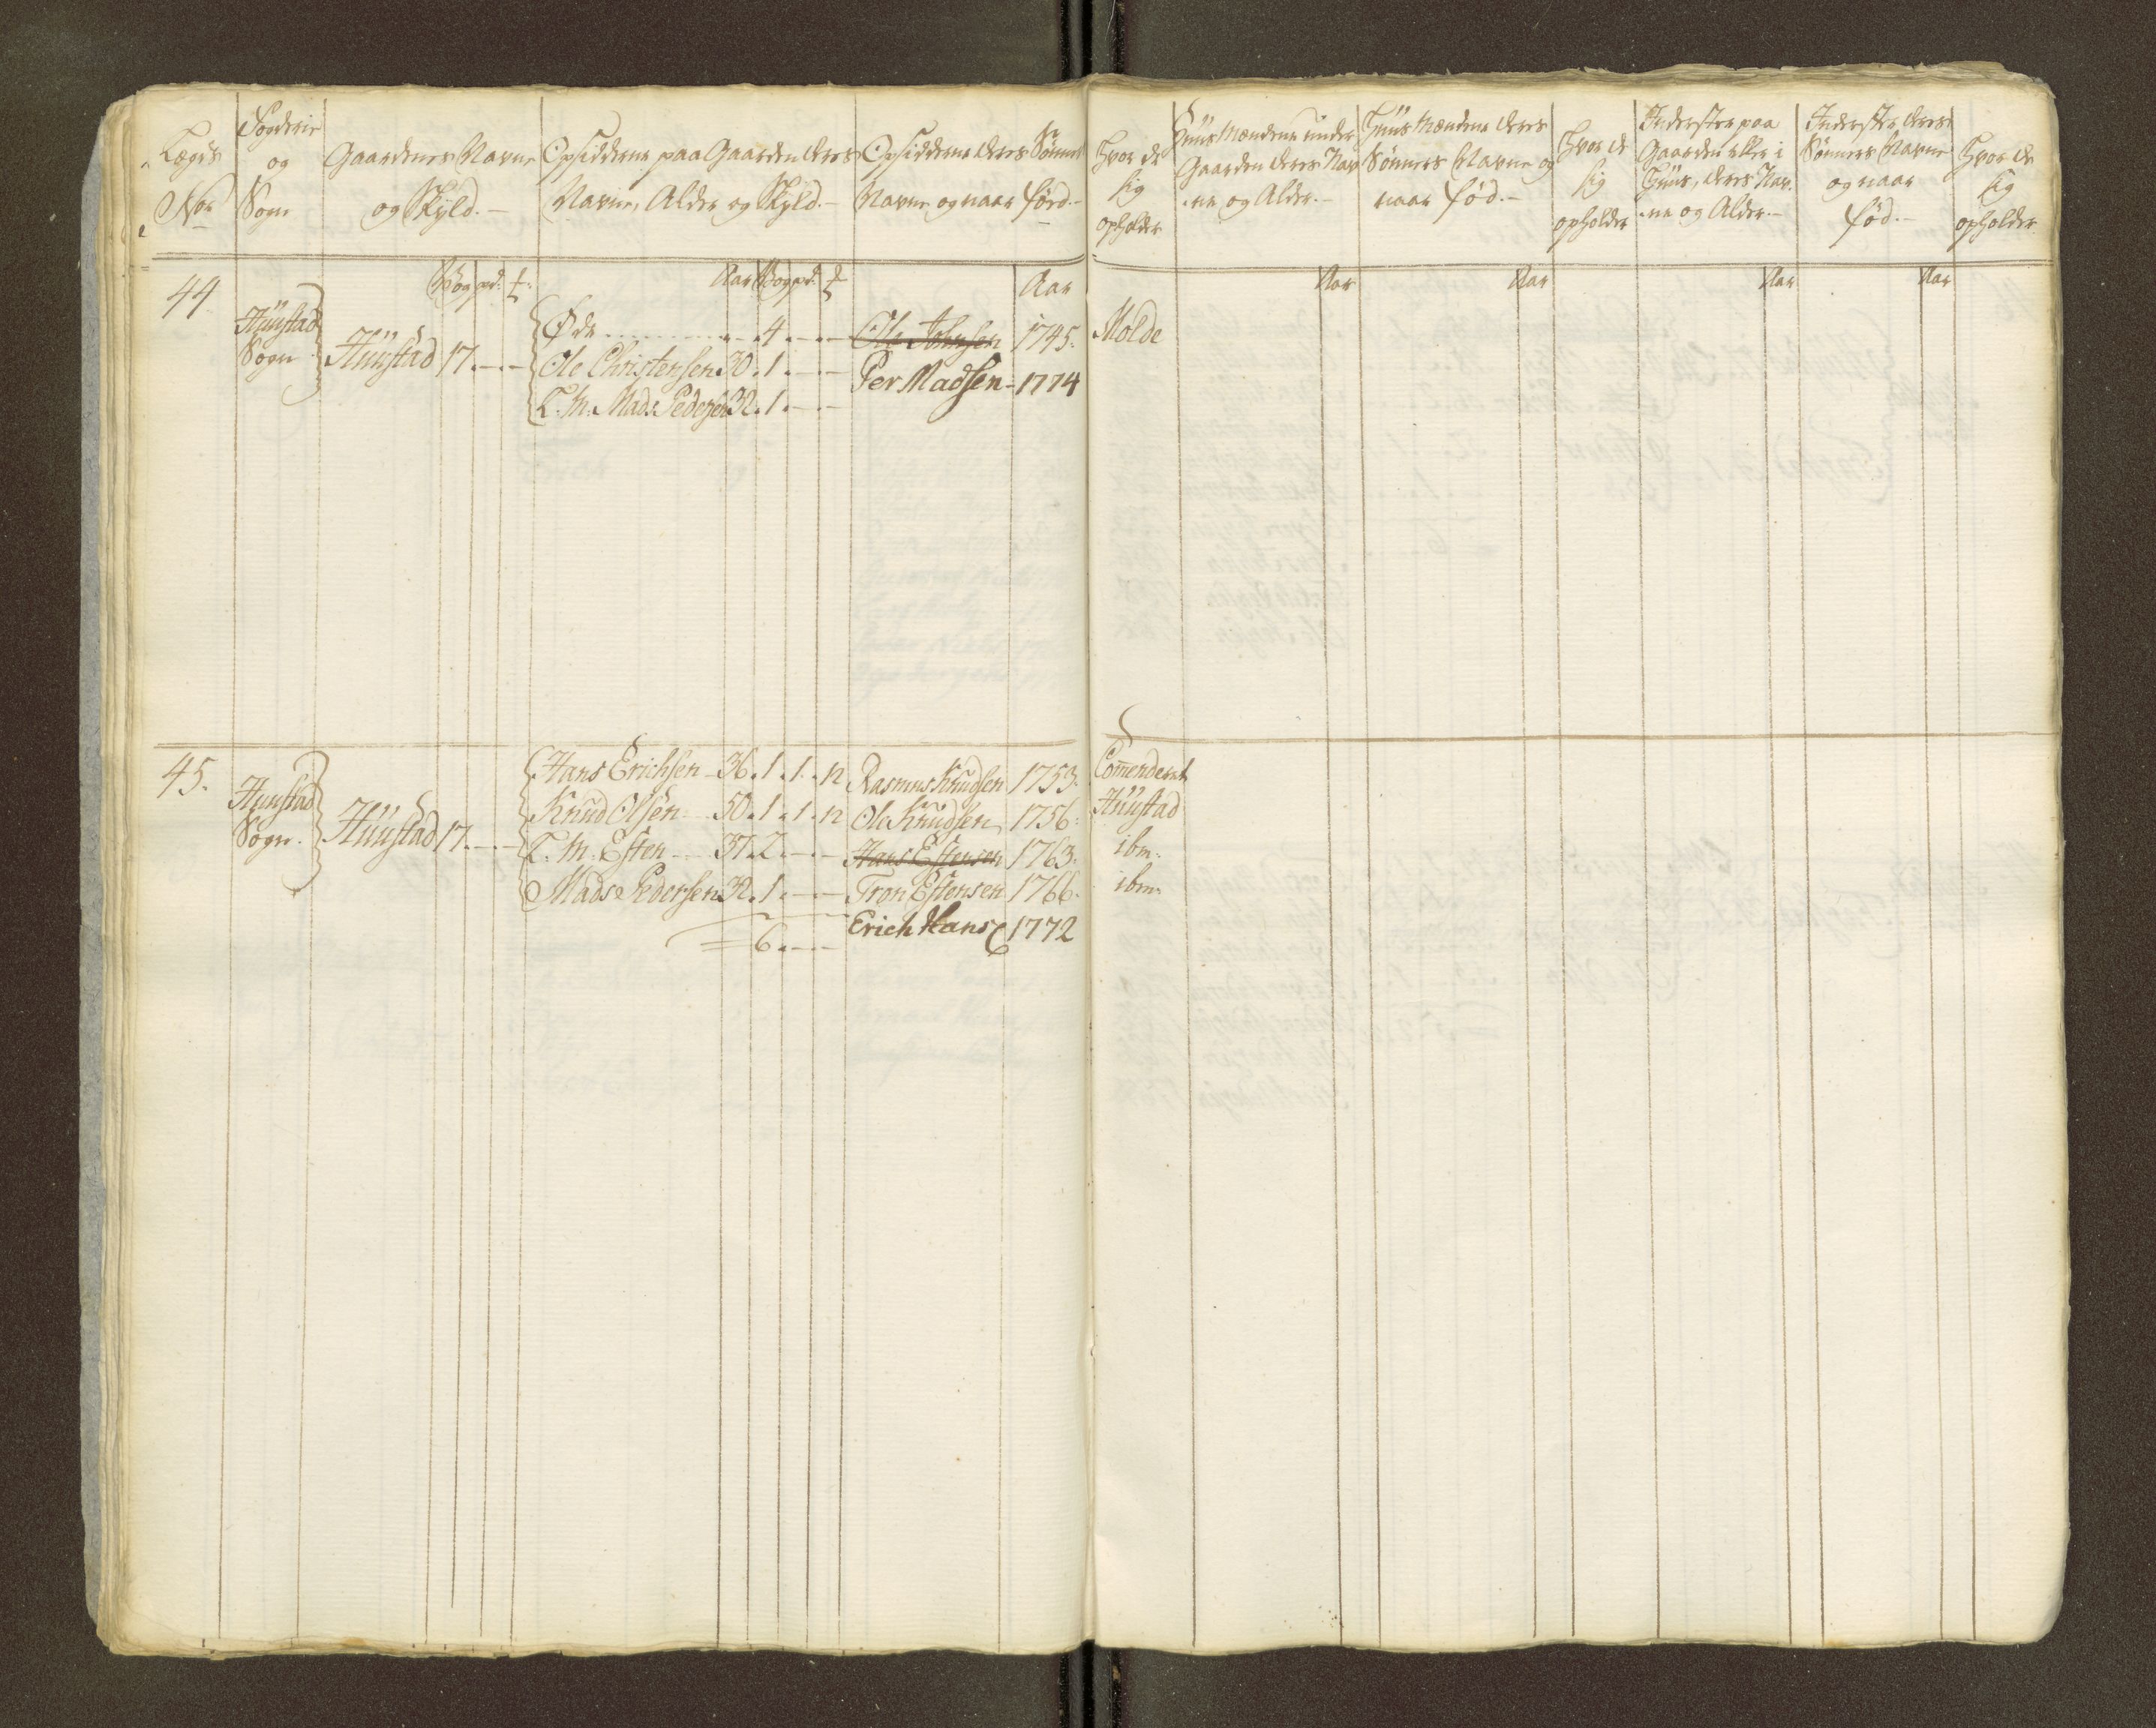 Lægds No
Fogderie og Sogn
Gaardenes Navne og Skyld.
Opsidderne paa Gaarden deres Navne, Alder og Skyld.
Opsidderne deres Sønners Navne og naar föed.
Hvor de sig opholder
Huusmændene under Gaarden deres Navne og Alder.
Huusmændene deres Sønners Navne og naar född.
Hvor de sig opholder
Inderster paa Gaarden eller i Huus, deres Navne og Alder.
Inderster deres Sønners Navne og naar född.
Hvor de sig opholder
Vog pd. ℔. Aar Vog pd. ℔ Aar Aar Aar Aar Aar
44
Huustad Sogn
Huustad 17. - -
Øde 4. - - Ole Johnsen 1745. Molde
Ole Christensen 30. 1. - - Per Madsen - 1774
T. M. Mads Pedersen 32. 1. - -
45.
Huustad Sogn.
Huustad 17. - -
Hans Erichsen - 36. 1. 1. 12 Rasmus Knudsen 1753. Com̄enderet
Knud Olsen - 50. 1. 1. 12 Ole Knudsen 1756. Huustad
T. M. Esten - 37. 2. - - Hans Estensen 1763. ibm.
Mads Pedersen 32. 1. - - Tron Estensen 1766. ibm.
6. - - Erich Hans 1772